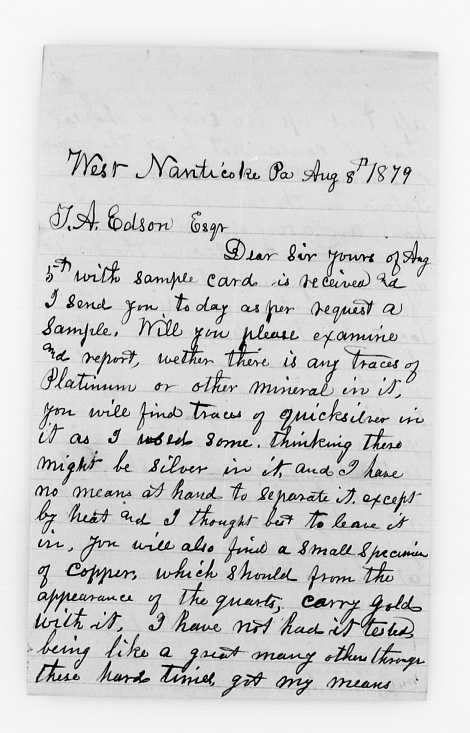 West Nanticoke Pa Aug 8th 1879
T. A. Edson Esqr
Dear Sir yours of Aug
5th with sample card is received and
I send you to day as per request a
Sample. Will you please examine
and report, wether there is any traces of
Platinum or other mineral in it,
you will find traces of quicksilver in
it as I used some. thinking there
might be silver in it, and I have
no means at hand to separate it. except
by heat and I thought best to leave it
in, you will also find a small specimen
of copper, which should from the
appearance of the quarts, carry gold
with it, I have not had it tested
being like a great many others through
these hard times, got my means